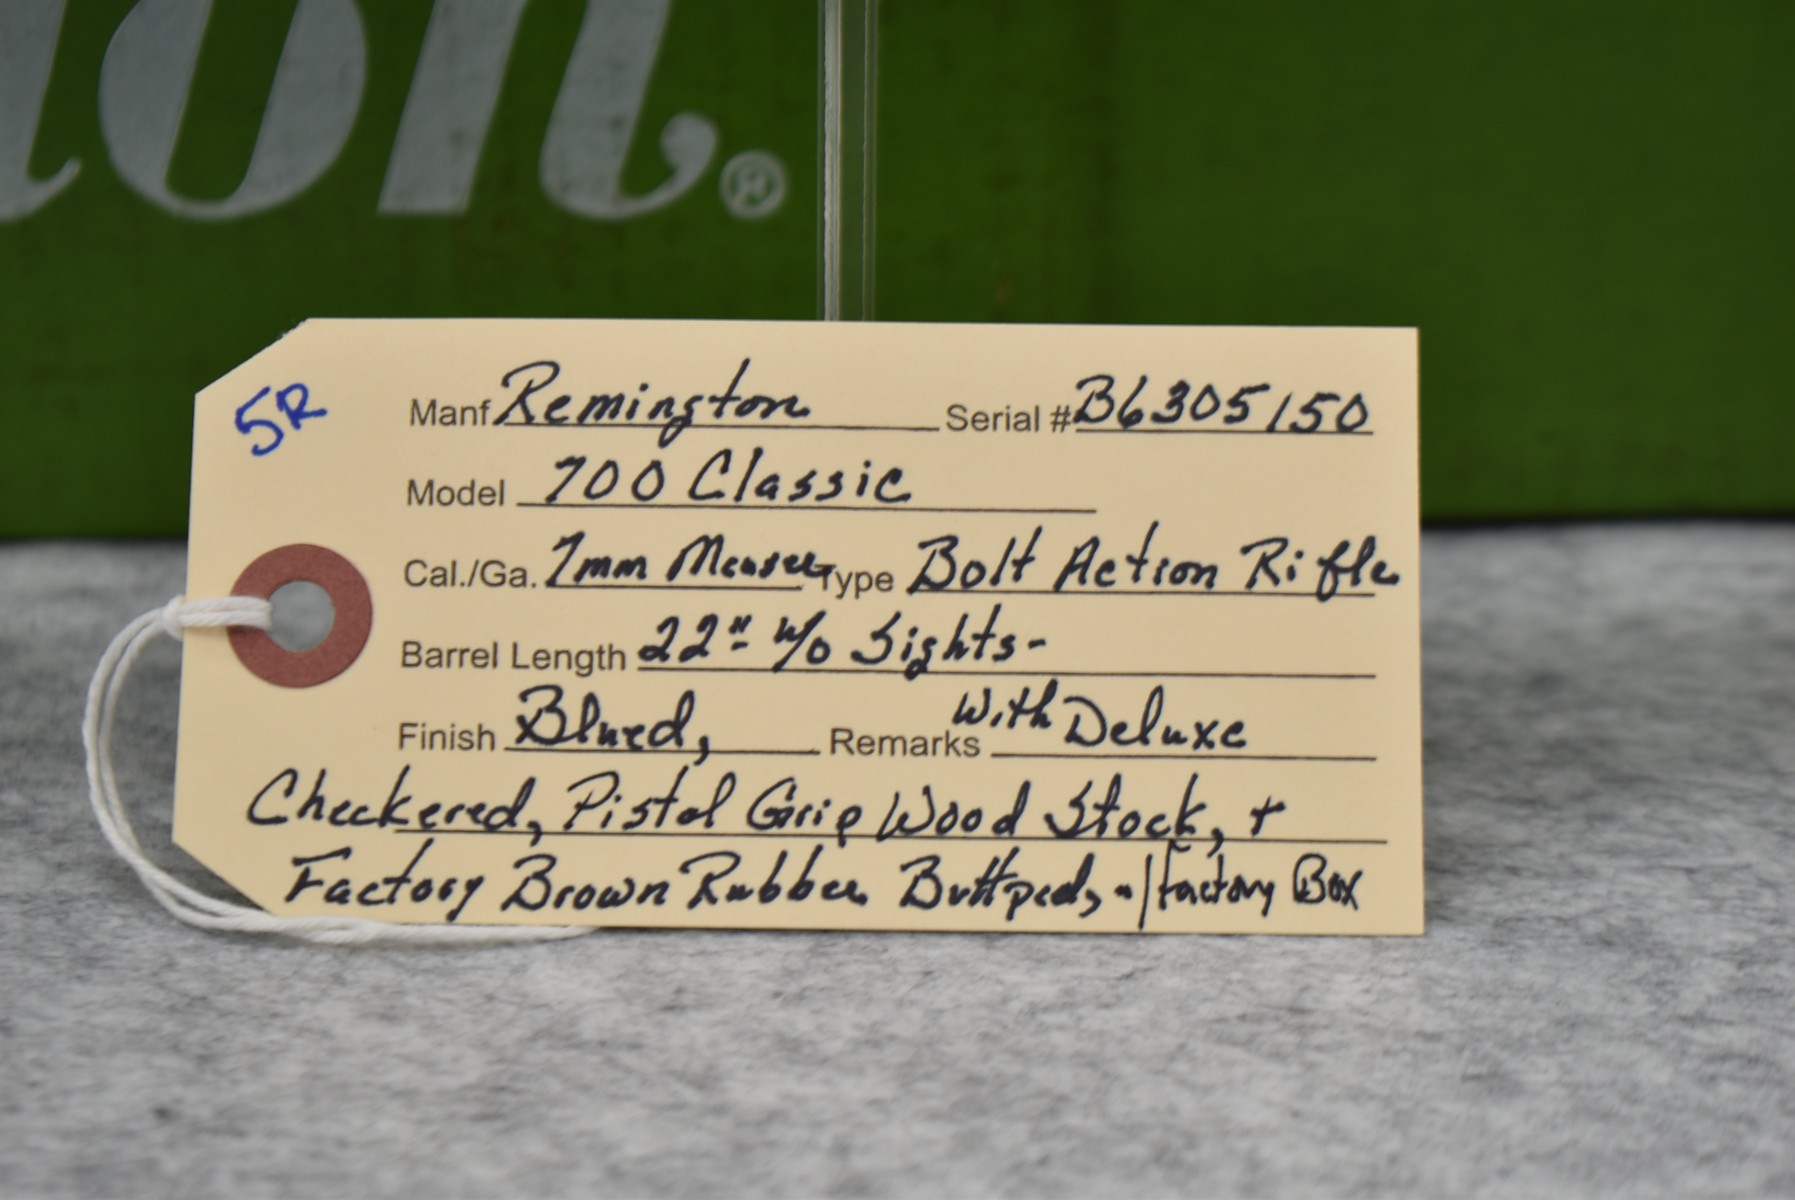 on.®
5R
Manf Remington Serial # B6305150
Model 700 Classic
Cal./Ga. 7mm Mauser Type Bolt Action Rifle
Barrel Length 22" w/o Sights-
Finish Blued, Remarks With Deluxe
Checkered, Pistol Grip Wood Stock, +
Factory Brown Rubber Buttpad, - / factory Box